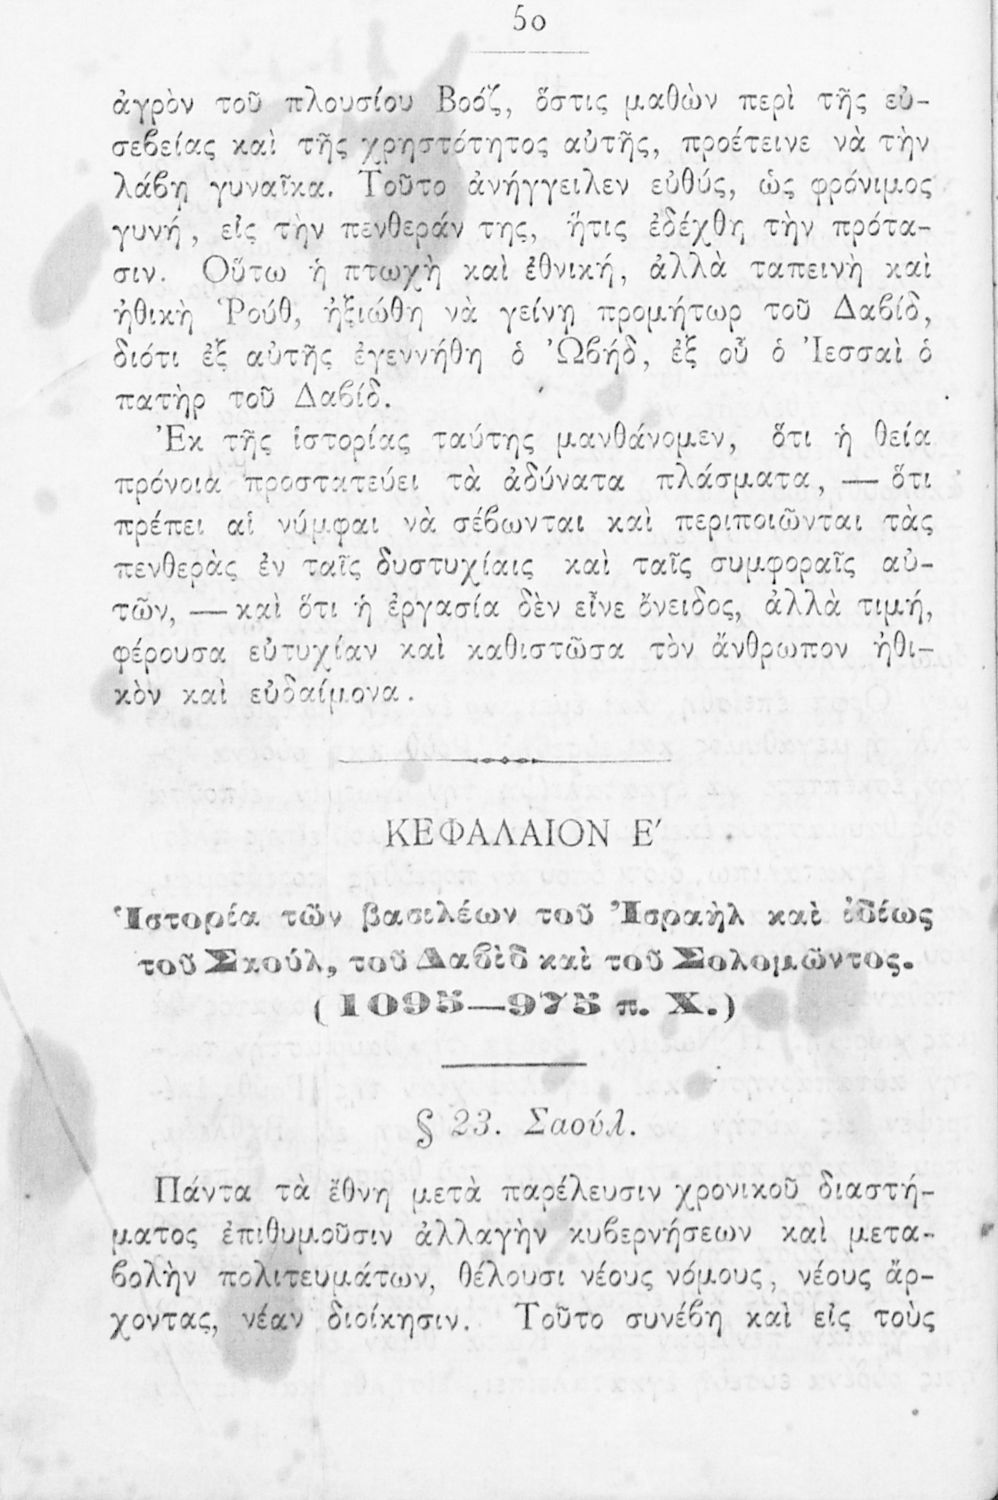 50
ἀγρὸν τοῦ πλουσίου Βοόζ, ὅστις μαθὼν περὶ τῆς εὐ-
σεβείας καὶ τῆς χρηστότητος αὐτῆς, προέτεινε νὰ τὴν
λάβῃ γυναῖκα. Τοῦτο ἀνήγγειλεν εὐθύς, ὡς φρόνιμος
γυνή, εἰς τὴν πενθεράν της, ἥτις ἐδέχθη τὴν πρότα-
σιν. Οὕτω ἡ πτωχὴ καὶ ἐθνική, ἀλλὰ ταπεινὴ καὶ
ἠθικὴ Ῥούθ, ἠξιώθη νὰ γείνῃ προμήτωρ τοῦ Δαβίδ,
διότι ἐξ αὐτῆς ἐγεννήθη ὁ Ὠβήδ, ἐξ οὗ ὁ Ἰεσσαὶ ὁ
πατὴρ τοῦ Δαβίδ.
Ἐκ τῆς ἱστορίας ταύτης μανθάνομεν, ὅτι ἡ θεία
πρόνοια προστατεύει τὰ ἀδύνατα πλάσματα, — ὅτι
πρέπει αἱ νύμφαι νὰ σέβωνται καὶ περιποιῶνται τὰς
πενθερὰς ἐν ταῖς δυστυχίαις καὶ ταῖς συμφοραῖς αὐ-
τῶν, — καὶ ὅτι ἡ ἐργασία δὲν εἶνε ὄνειδος, ἀλλὰ τιμή,
φέρουσα εὐτυχίαν καὶ καθιστῶσα τὸν ἄνθρωπον ἠθι-
κὸν καὶ εὐδαίμονα.
ΚΕΦΑΛΑΙΟΝ Ε΄
Ἱστορία τῶν βασιλέων τοῦ Ἰσραὴλ καὶ ἰδίως
τοῦ Σαούλ, τοῦ Δαβὶδ καὶ τοῦ Σολομῶντος.
(1095—975 π. Χ.)
§ 23. Σαούλ.
Πάντα τὰ ἔθνη μετὰ παρέλευσιν χρονικοῦ διαστή-
ματος ἐπιθυμοῦσιν ἀλλαγὴν κυβερνήσεων καὶ μετα-
βολὴν πολιτευμάτων, θέλουσι νέους νόμους, νέους ἄρ-
χοντας, νέαν διοίκησιν. Τοῦτο συνέβη καὶ εἰς τοὺς